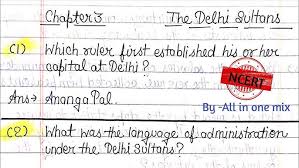 Chapter 3 The Delhi Sultans
Q1) Which ruler first established his or her
capital at Delhi?
Ans→ Ananga Pal.
NCERT
By -All in one mix
Q2) What was the language of administration
under the Delhi Sultans?